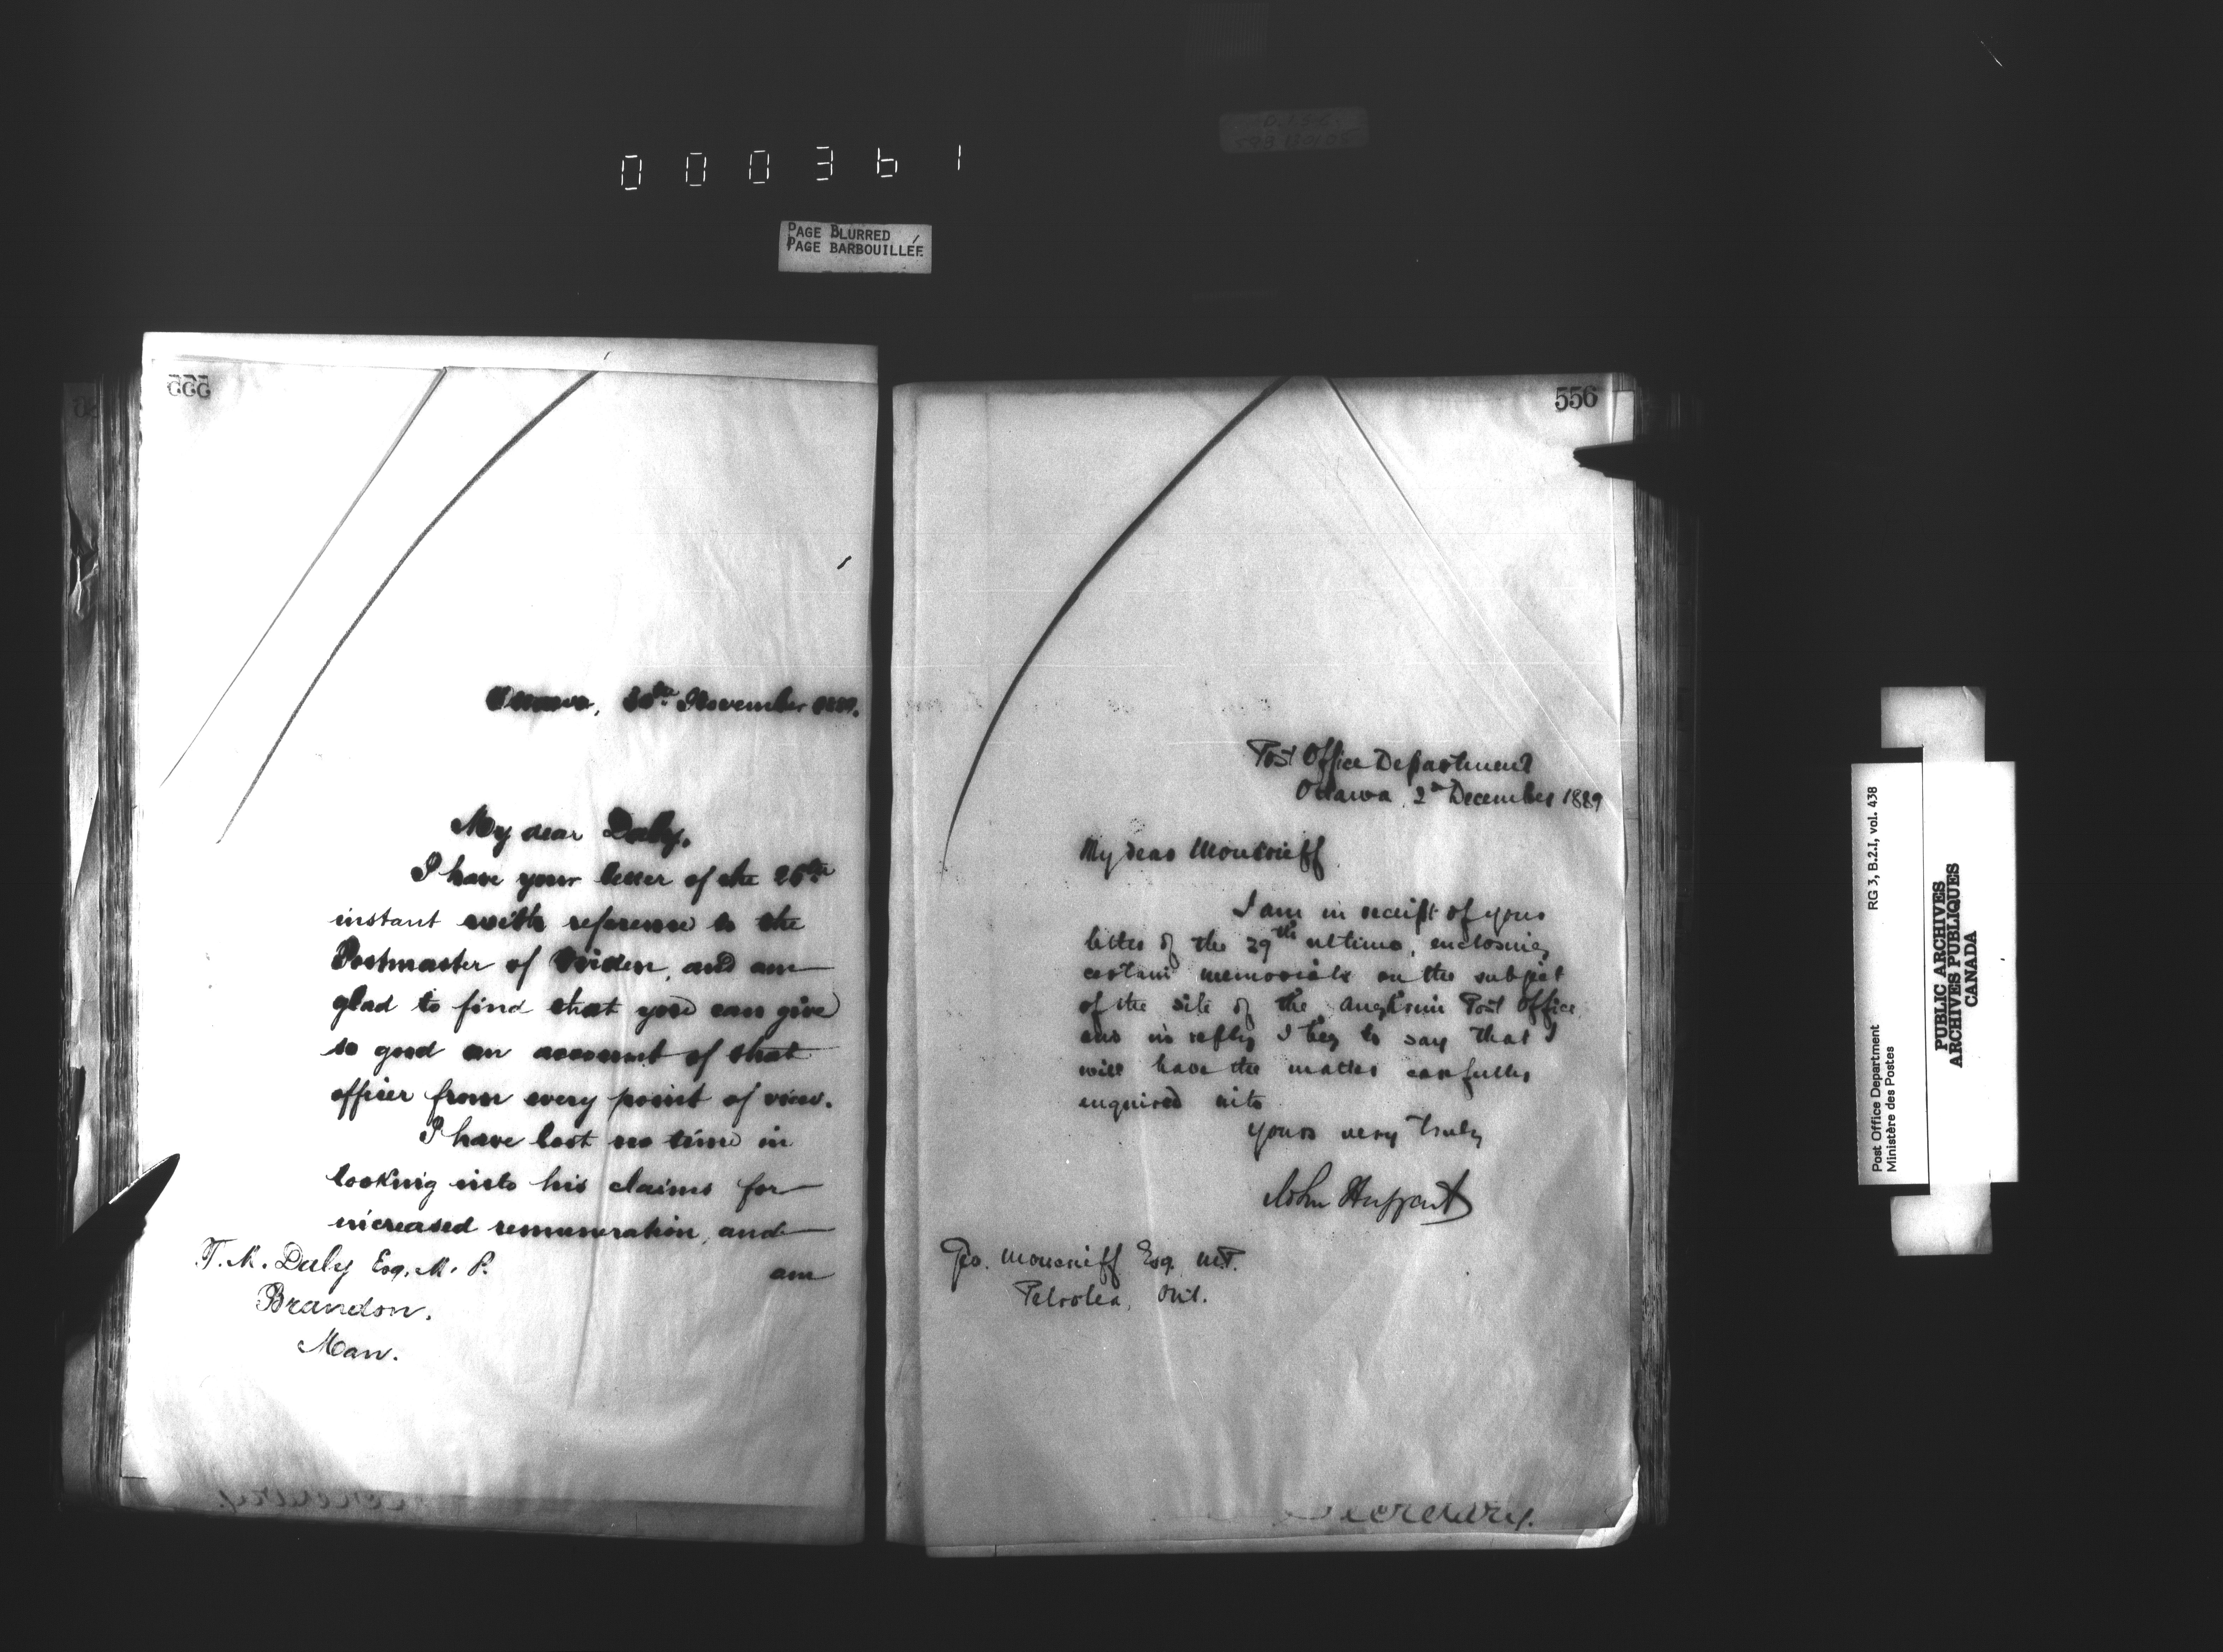 000361
PAGE BLURRED
PAGE BARBOUILLÉE
555
Ottawa, 30th November 1889.
My dear Daly,
I have your letter of the 26th
instant with reference to the
Postmaster of Virden, and am
glad to find that you can give
so good an account of that
officer from every point of view.
I have lost no time in
looking into his claims for
increased remuneration, and
am
T. M. Daly Esq. M. P.
Brandon.
Man.
556
Post Office Department
Ottawa, 2nd December 1889
My dear Moncrieff
I am in receipt of your
letter of the 29th ultimo, enclosing
certain memorials on the subject
of the site of the Aughrim Post Office,
and in reply I beg to say that I
will have the matter carefully
enquired into
Yours very truly
John Haggart
Geo. Moncrieff Esq. M.P.
Petrolea, Ont.
Secretary.
Post Office Department RG 3, B.2.1, vol. 438
Ministère des Postes
PUBLIC ARCHIVES
ARCHIVES PUBLIQUES
CANADA